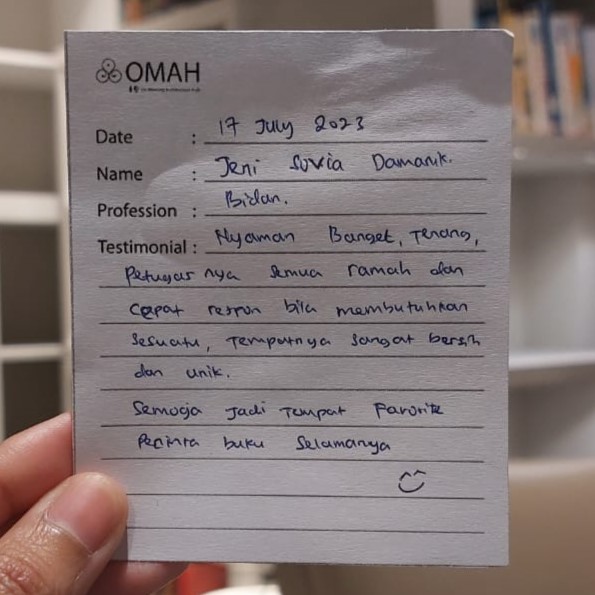 OMAH
Date : 17 July 2023
Name : Jeni Suvia Damanik.
Profession : Bidan.
Testimonial : Nyaman Banget, Tenang,
Petugas nya semua ramah dan
cepat respon bila membutuhkan
sesuatu, Tempatnya sangat bersih
dan unik.
Semoga Jadi Tempat Favorite
Pecinta buku Selamanya